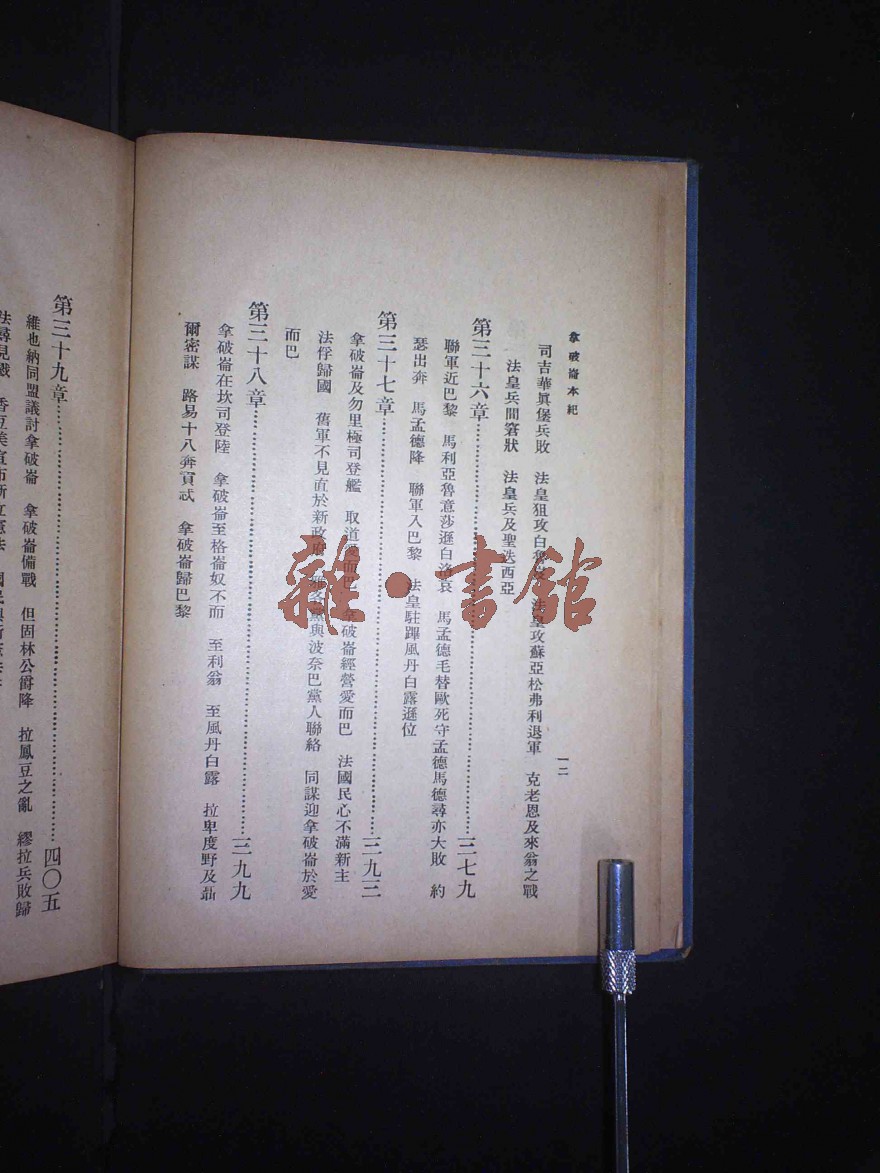 拿破崙本紀
一二
司吉華眞堡兵敗　法皇狙攻白　法皇攻蘇亞松弗利退軍　克老恩及來翁之戰
法皇兵間窘狀　法皇兵及聖迭西亞
第三十六章……三七九
聯軍近巴黎　馬利亞魯意莎遜白洛哀　馬孟德毛替歐死守孟德馬德尋亦大敗　約
瑟出奔　馬孟德降　聯軍入巴黎　法皇駐蹕風丹白露遜位
第三十七章……三九三
拿破崙及勿里極司登艦　取道愛而巴　拿破崙經營愛而巴　法國民心不滿新主
法俘歸國　舊軍不見直於新政府　黨與波奈巴黨人聯絡　同謀迎拿破崙於愛
而巴
第三十八章……三九九
拿破崙在坎司登陸　拿破崙至格崙奴不而　至利翁　至風丹白露　拉卑度野及
爾密謀　路易十八奔　拿破崙歸巴黎
第三十九章……四〇五
維也納同盟議討拿破崙　拿破崙備戰　但固林公爵降　拉鳳豆之亂　繆拉兵敗歸
雜·書館